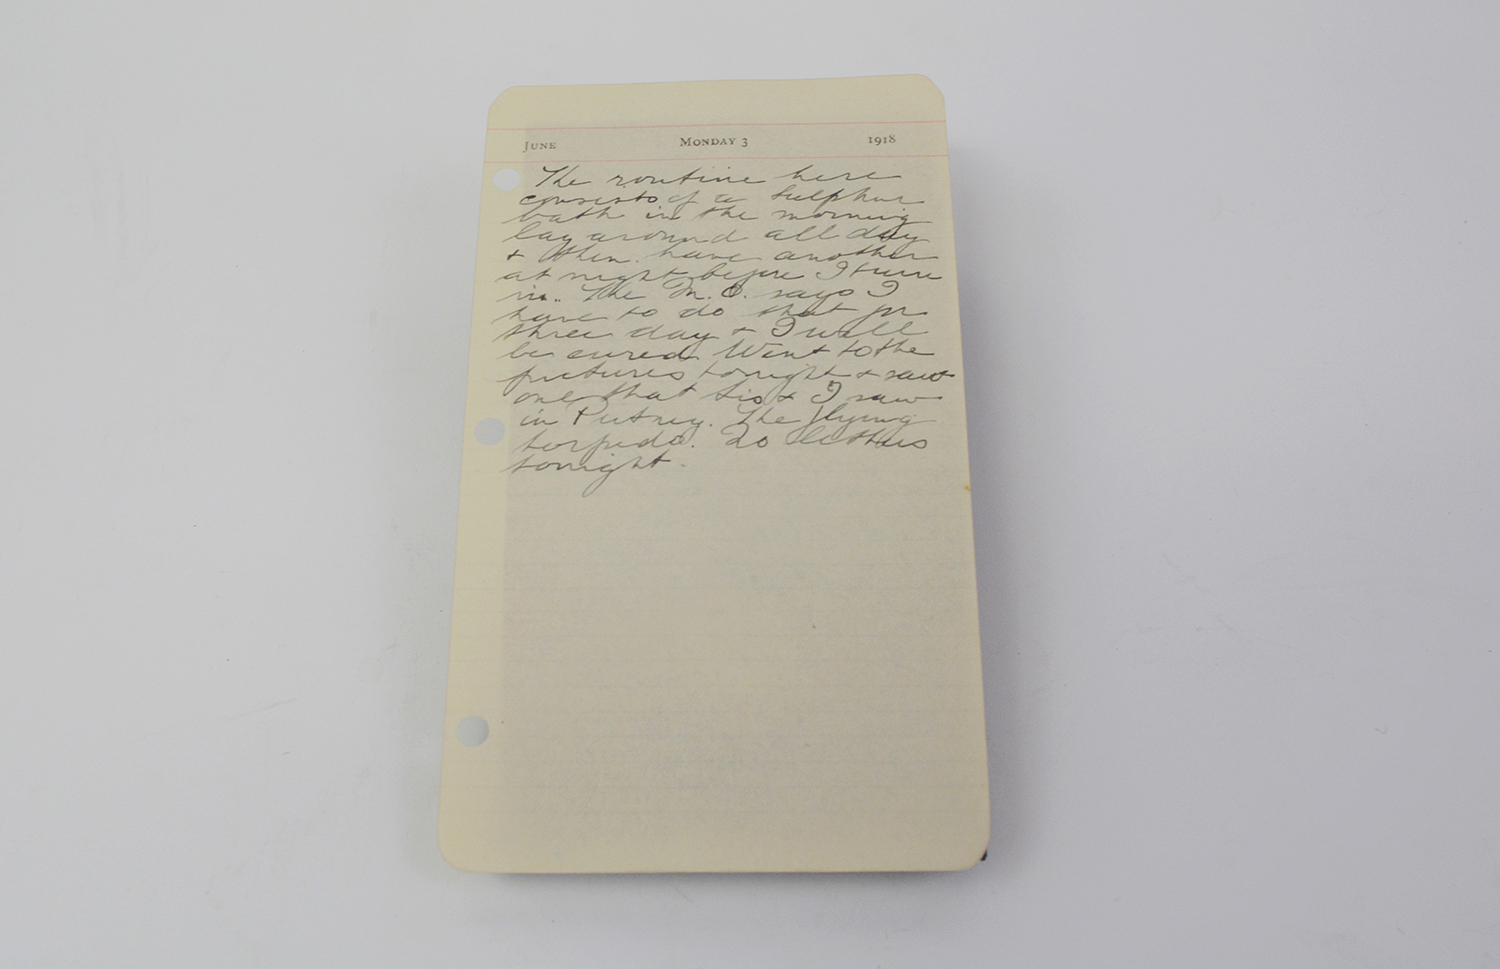 June Monday 3 1918
The routine here
consists of a sulphur
bath in the morning
lay around all day
+ then have another
at night before I turn
in. The M.O. says I
have to do that for
three day + I will
be cured. Went to the
pictures tonight + saw
one that Sis + I saw
in Putney. The flying
torpedo. No letters
tonight.